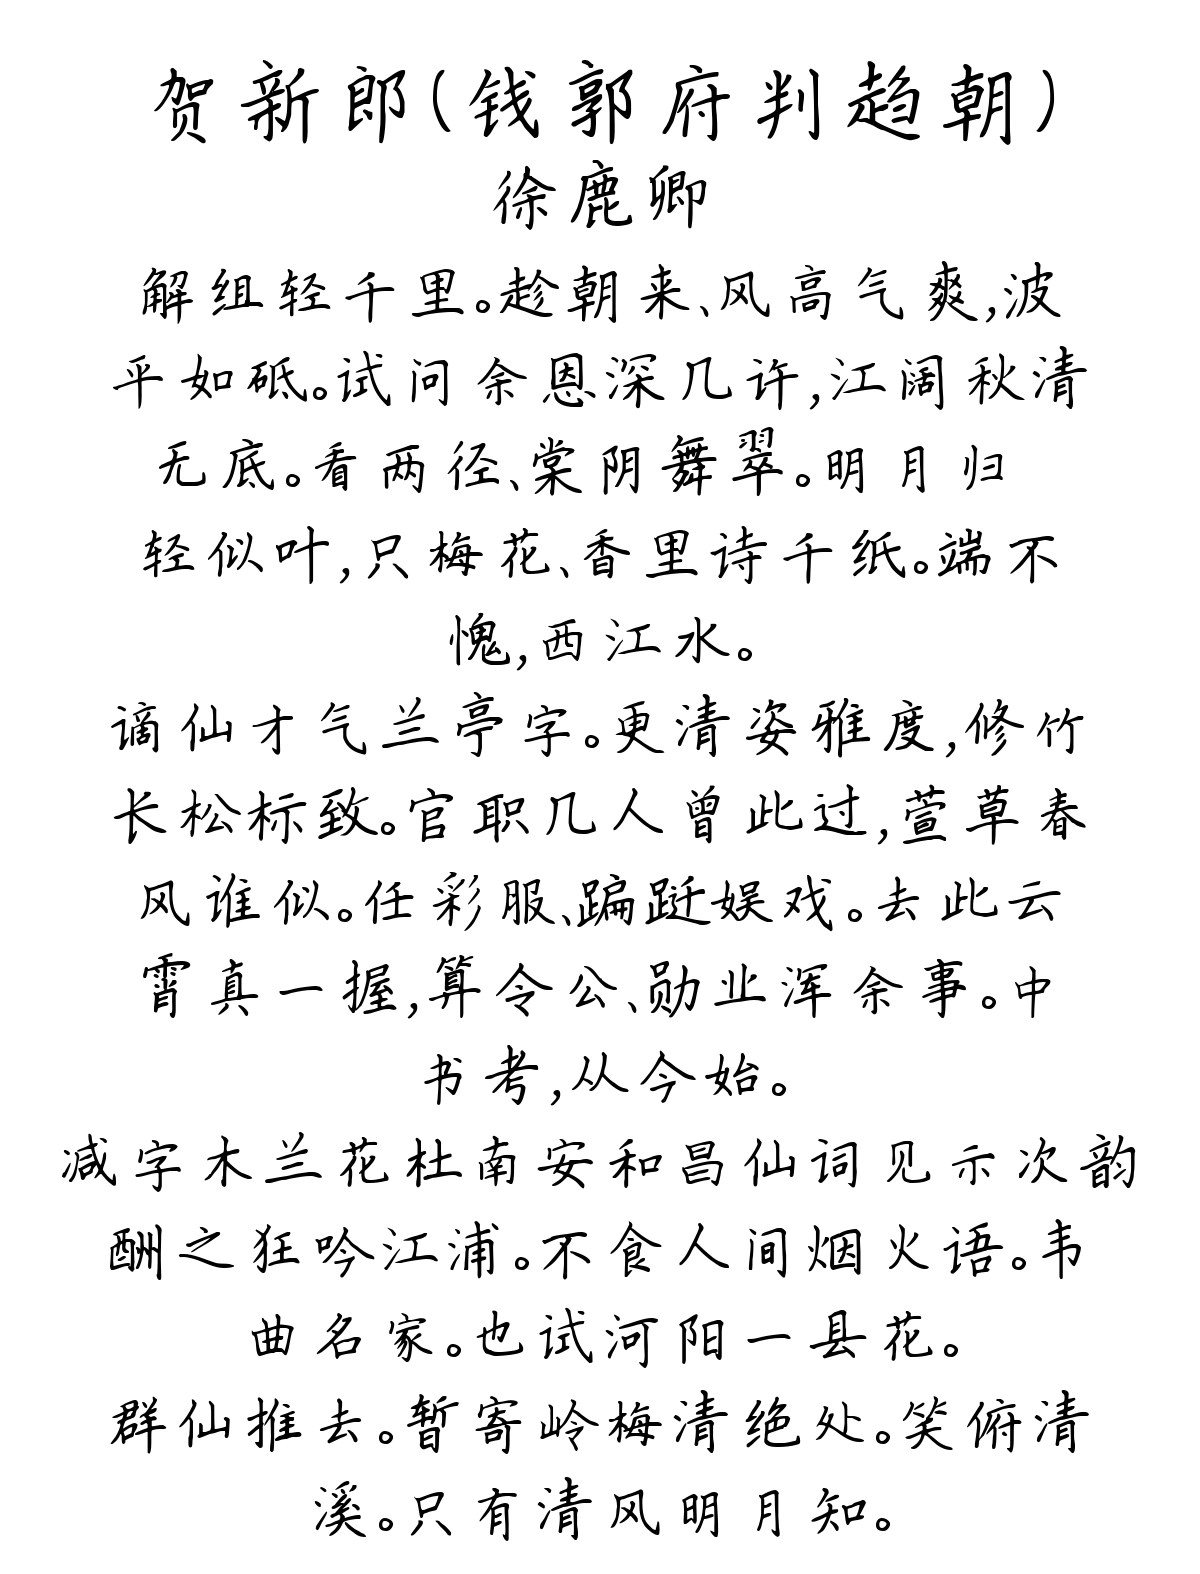 贺新郎(钱郭府判趋朝)
徐鹿卿
解组轻千里。趁朝来、风高气爽,波
平如砥。试问余恩深几许,江阔秋清
无底。看两径、棠阴舞翠。明月归
轻似叶,只梅花、香里诗千纸。端不
愧,西江水。
谪仙才气兰亭字。更清姿雅度,修竹
长松标致。官职几人曾此过,萱草春
风谁似。任彩服、蹁跹娱戏。去此云
霄真一握,算令公、勋业浑余事。中
书考,从今始。
减字木兰花杜南安和昌仙词见示次韵
酬之狂吟江浦。不食人间烟火语。韦
曲名家。也试河阳一县花。
群仙推去。暂寄岭梅清绝处。笑俯清
溪。只有清风明月知。